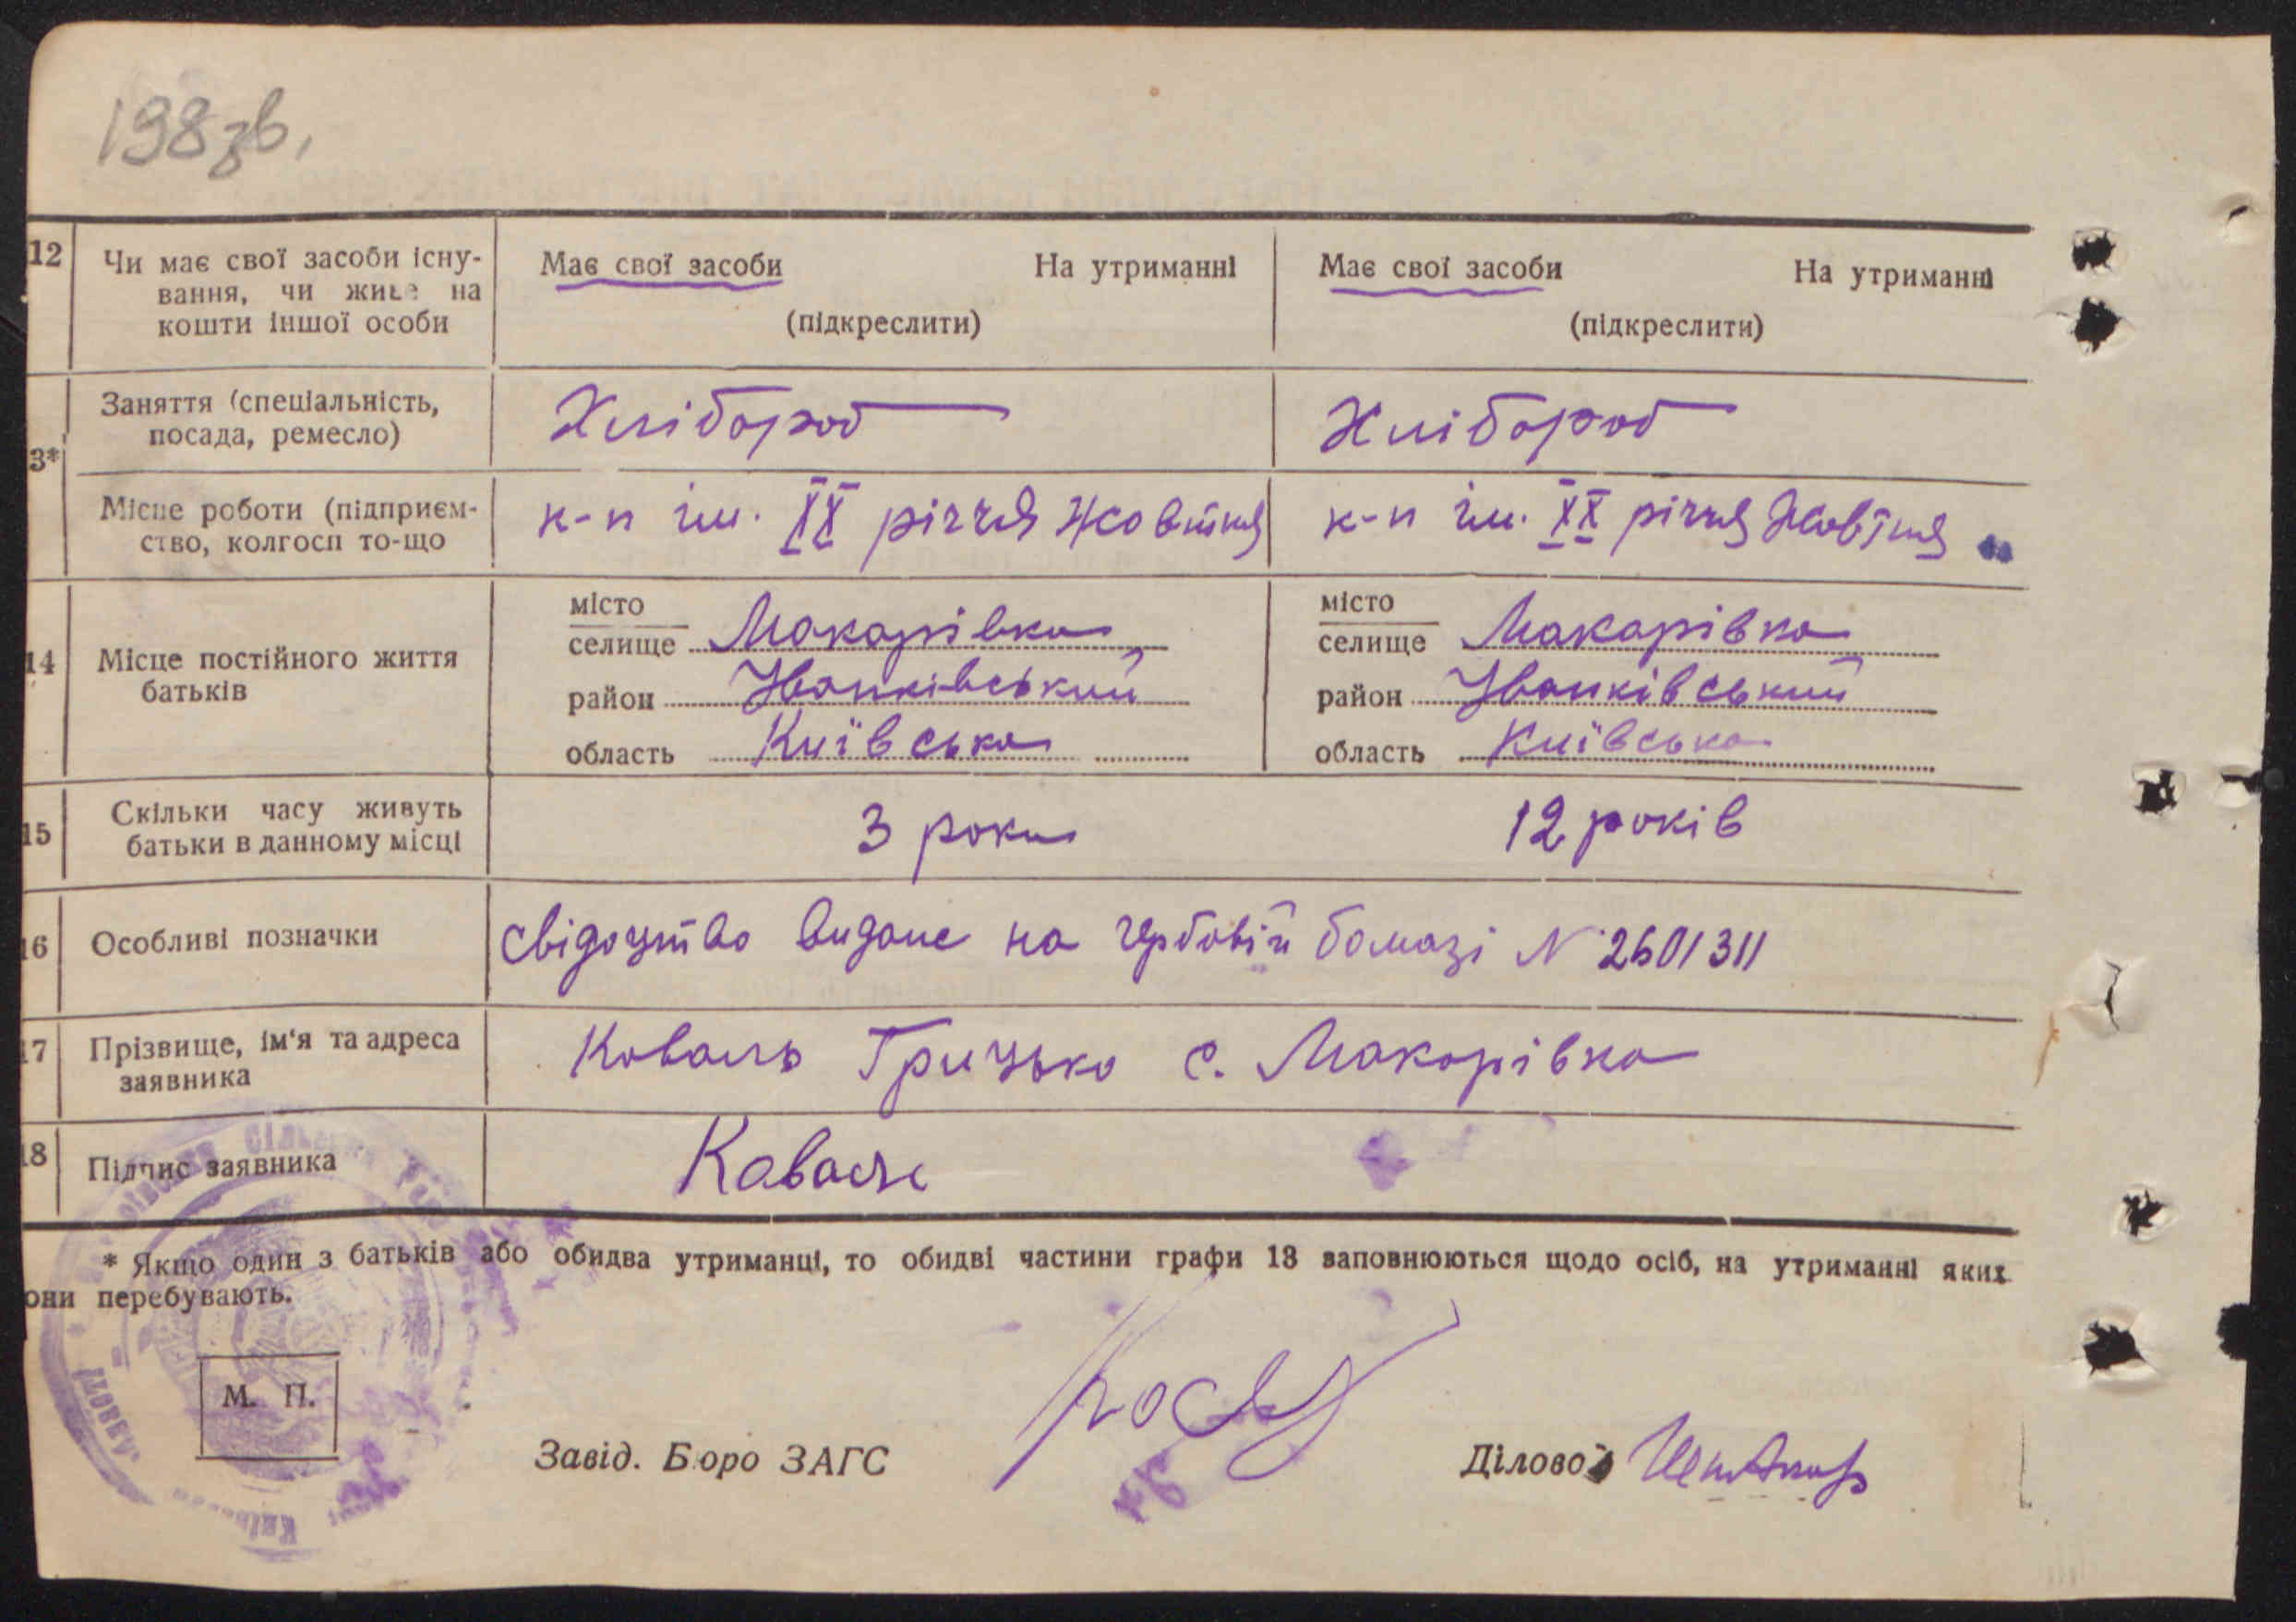 198зв,
12 Чи має свої засоби існу- Має свої засоби На утриманні Має свої засоби На утриманні
вання, чи живе на
кошти іншої особи (підкреслити) (підкреслити)
Заняття (спеціальність, Хлібороб Хлібороб
посада, ремесло)
3*
Місце роботи (підприєм- к-п ім. ХХ річчя Жовтня к-п ім. ХХ річчя Жовтня
ство, колгосп то-що
місто місто
селище Макарівка селище Макарівка
14 Місце постійного життя
батьків
район Іванківський район Іванківський
область Київська область Київська
15 Скільки часу живуть 3 роки 12 років
батьки в данному місці
16 Особливі позначки свідоцтво видане на гербовій бомазі N 2601311
17 Прізвище, ім'я та адреса Коваль Грицько с. Макарівка
заявника
18 Підпис заявника Коваль
* Якщо один з батьків або обидва утриманці, то обидві частини графи 13 заповнюються щодо осіб, на утриманні яких
они перебувають.
М. П.
Завід. Бюро ЗАГС Діловод